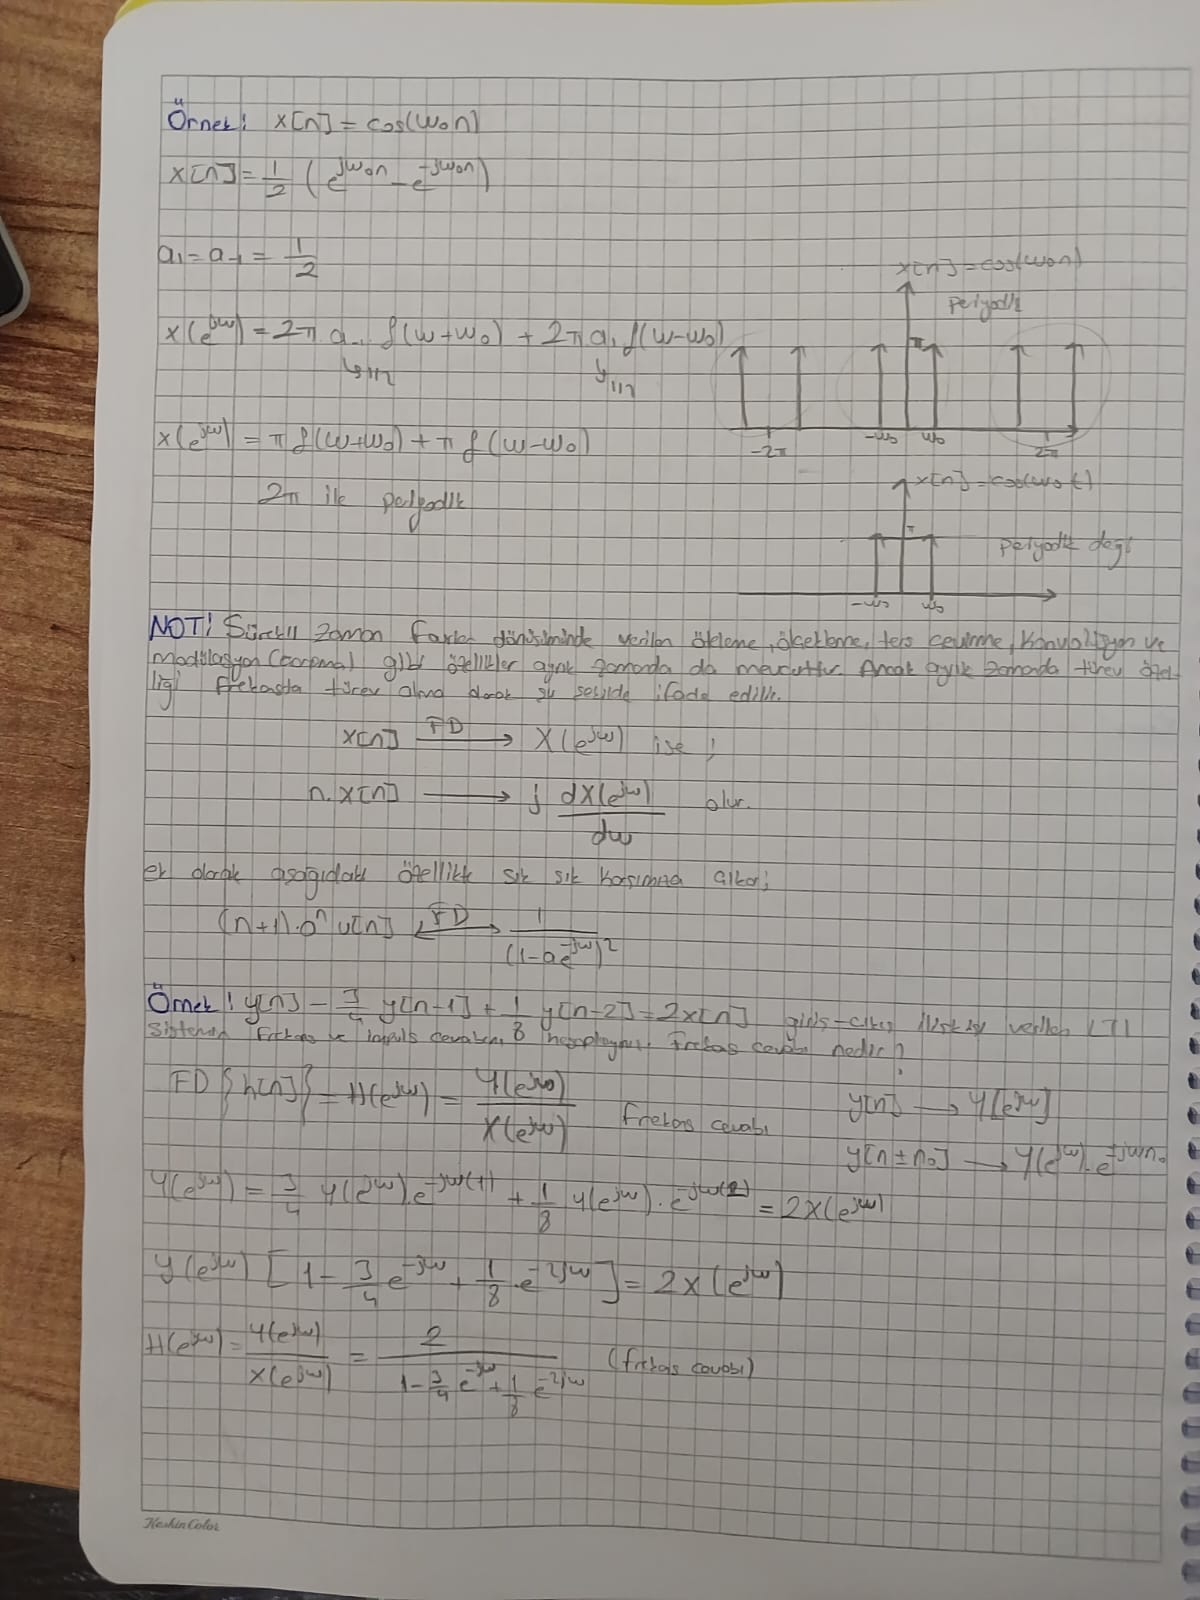 Örnek: x[n] = cos(w₀n)
x[n] = 1/2 (e^(jw₀n) - e^(-jw₀n))
a₁ = a₋₁ = 1/2
x(e^(jw)) = 2π a₋₁ δ(w+w₀) + 2π a₁ δ(w-w₀)
1/2 1/2
x(e^(jw)) = π δ(w+w₀) + π δ(w-w₀)
2π ile periyodik
x[n] = cos(w₀n)
periyodik
π
-2π -w₀ w₀ 2π
x[n] = cos(w₀t)
π
periyodik değil
-w₀ w₀
NOT! Sürekli zaman Fourier dönüşiminde verilen öteleme, ölçekleme, ters cevirme, Konvolüsyon ve
Modülasyon (çarpma) gibi özellikler ayrık zamanda da mevcuttur. Ancak ayrık zamanda türev özel-
liği frekasta türev alma olarak şu şekilde ifade edilir.
x[n] FD→ X(e^(jw)) ise ;
n.x[n] → j dX(e^(jw))/dw olur.
ek olarak aşağıdaki özellikte sık sık karşımıza çıkar;
(n+1).a^n u[n] FD↔ 1/(1-ae^(-jw))²
Örnek! y[n] - 3/4 y[n-1] + 1/8 y[n-2] = 2x[n] giriş-çıkış ilişkisi verilen LTI
Sistemin frekas ve impuls cevabını hesaplayınız. Frekas cevabı nedir?
FD{h[n]} = H(e^(jw)) = Y(e^(jw))/X(e^(jw)) frekas cevabı
y[n] → Y(e^(jw))
y[n±n₀] → Y(e^(jw)).e^(∓jwn₀)
Y(e^(jw)) = 3/4 Y(e^(jw)).e^(-jw(1)) + 1/8 Y(e^(jw)).e^(-jw(2)) = 2X(e^(jw))
y(e^(jw)) [1 - 3/4 e^(-jw) + 1/8 . e^(-2jw)] = 2x(e^(jw))
H(e^(jw)) = Y(e^(jw))/X(e^(jw)) = 2/(1 - 3/4 e^(-jw) + 1/8 e^(-2jw)) (frekas cevabı)
KeskinColor